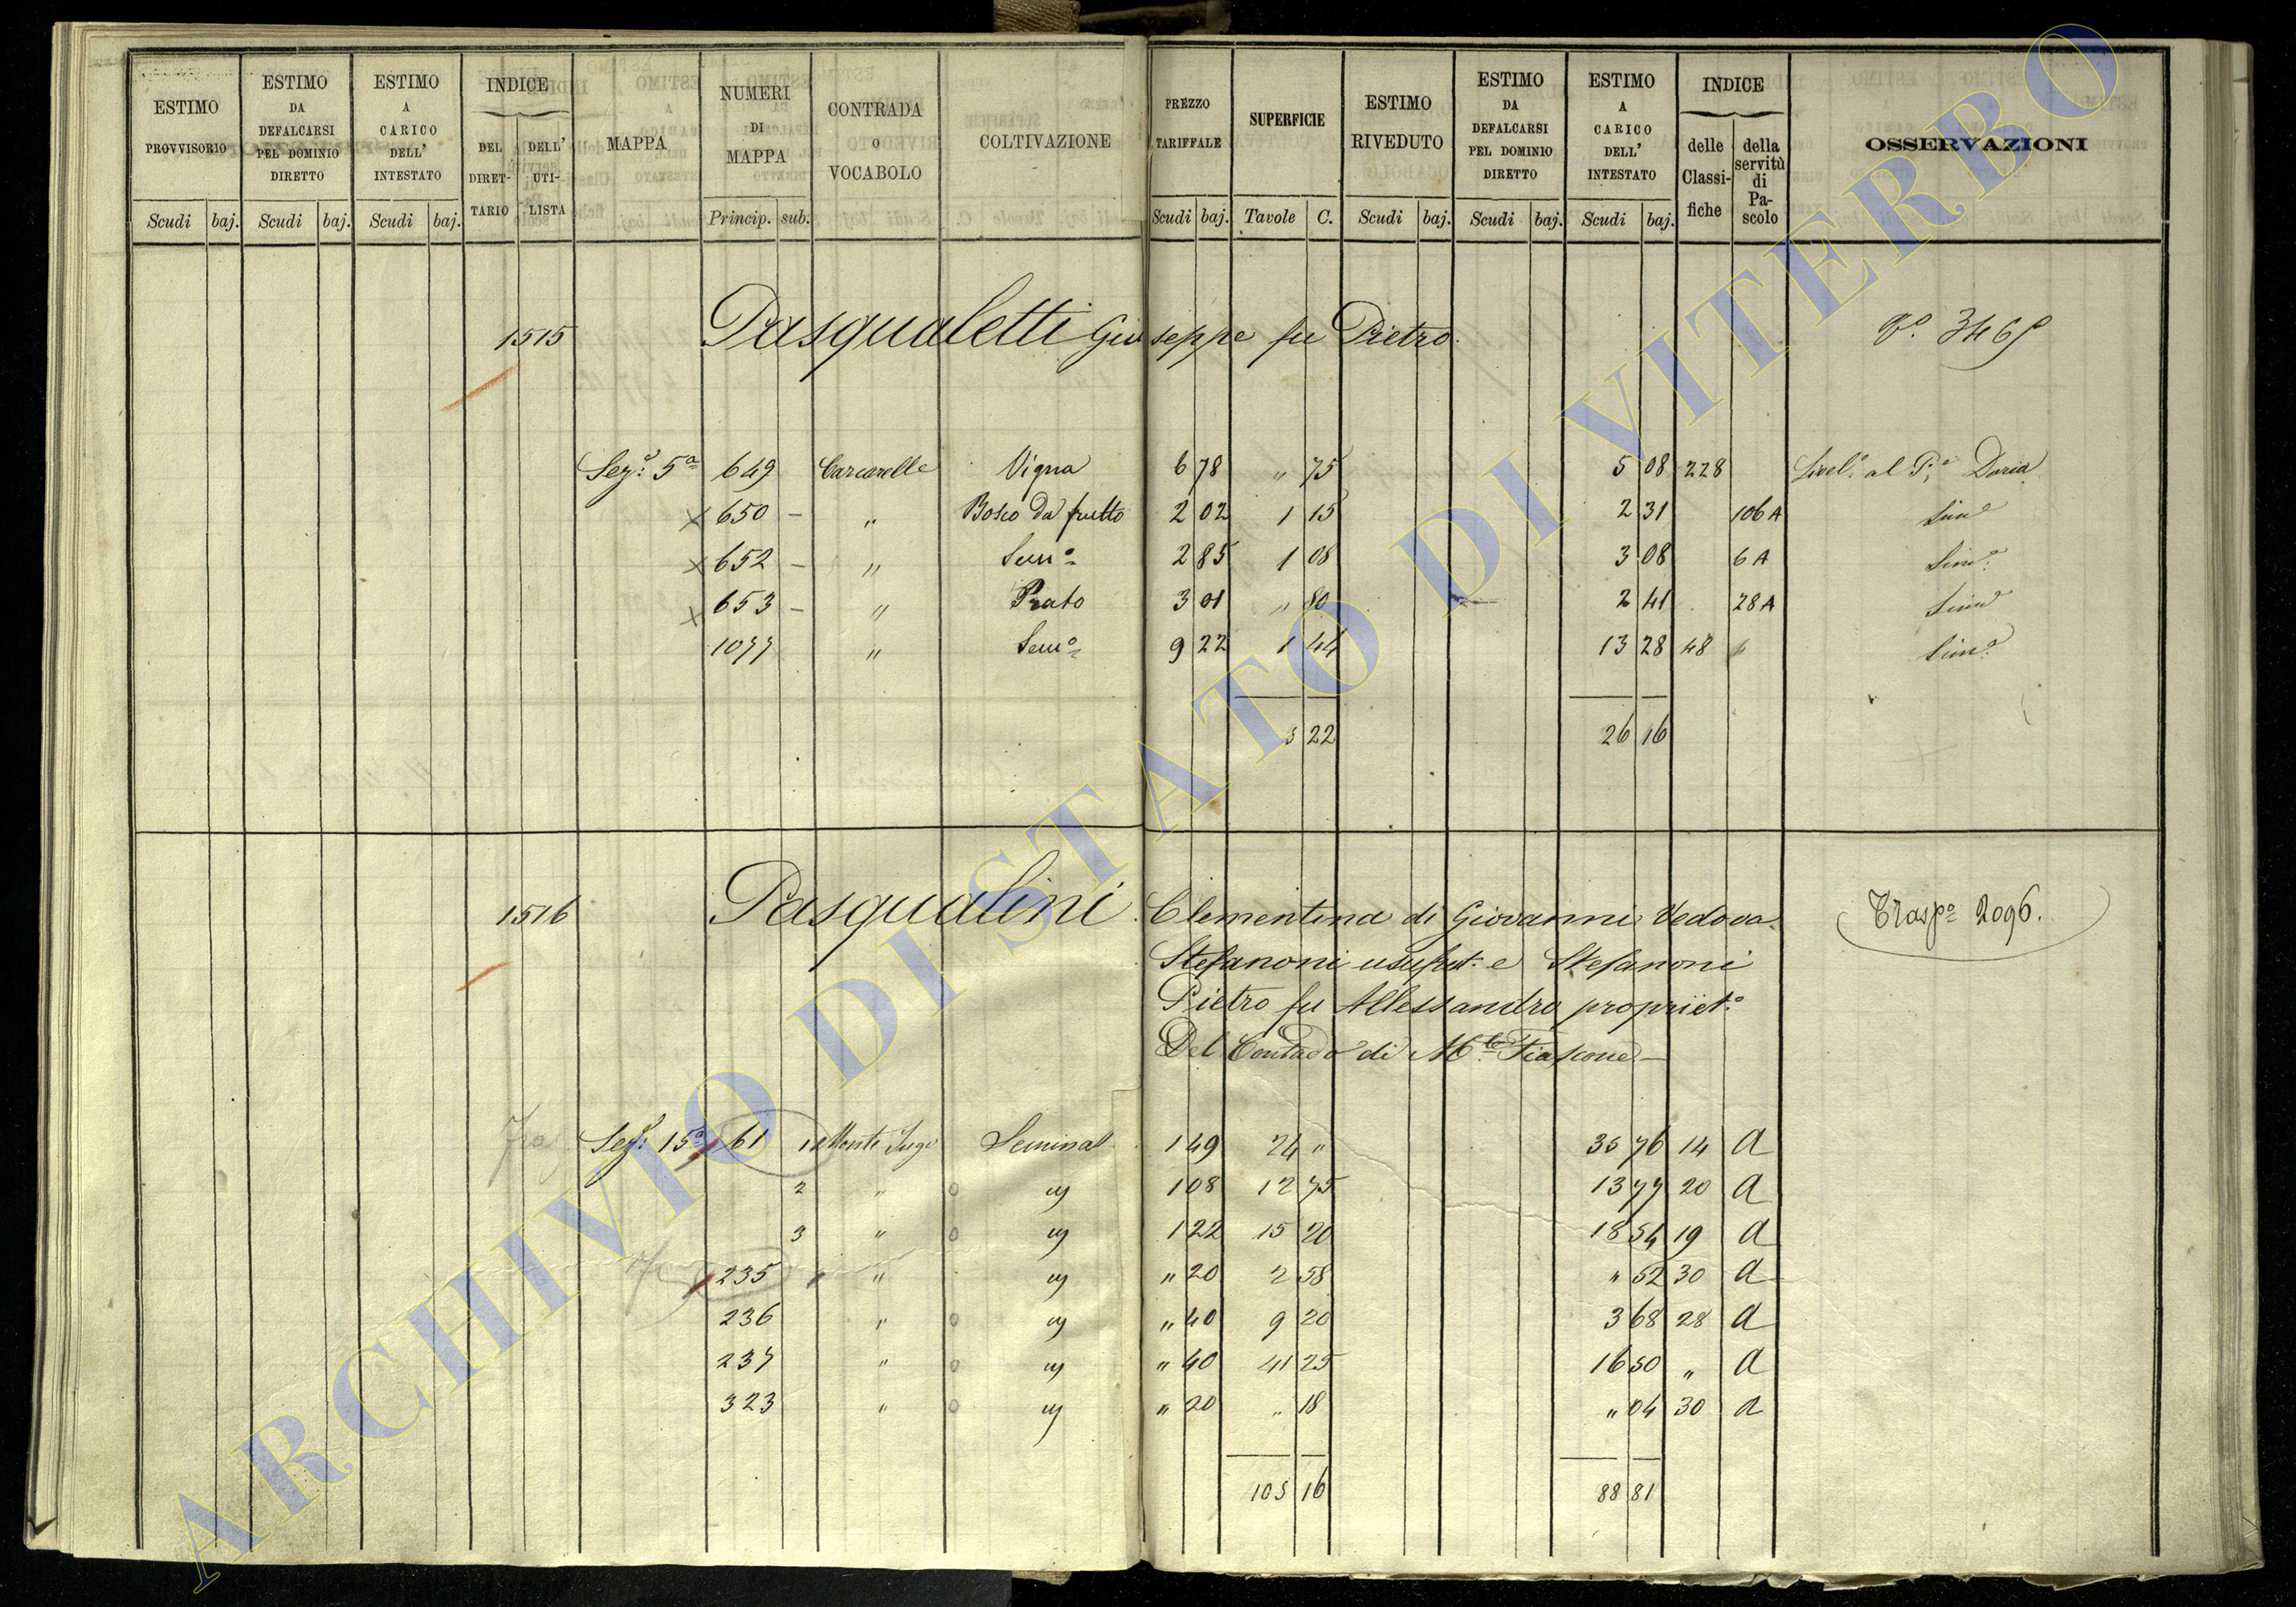 ESTIMO PROVVISORIO Scudi baj.
ESTIMO DA DEFALCARSI PEL DOMINIO DIRETTO Scudi baj.
ESTIMO A CARICO DELL' INTESTATO Scudi baj.
INDICE DEL DIRET- TARIO DELL' UTI- LISTA
MAPPA
NUMERI DI MAPPA Princip. sub.
CONTRADA O VOCABOLO
COLTIVAZIONE
PREZZO TARIFFALE Scudi baj.
SUPERFICIE Tavole C.
ESTIMO RIVEDUTO Scudi baj.
ESTIMO DA DEFALCARSI PEL DOMINIO DIRETTO Scudi baj.
ESTIMO A CARICO DELL' INTESTATO Scudi baj.
INDICE delle Classi- fiche della servitù di Pa- scolo
OSSERVAZIONI
1515 Pasqualetti Giuseppe fu Pietro.
Sezе 5ª 649 Carcarelle Vigna 6 78 " 75 5 08 228 Livelº al Pe Doria
x 650 - " Bosco da frutto 2 02 1 15 2 31 106 A Simº
x 652 - " Semº 2 85 1 08 3 08 6 A Simº
x 653 - " Prato 3 01 " 80 2 41 28 A Simº
1077 " Semº 9 22 1 44 13 28 48 Simº
5 22 26 16
1516 Pasqualini Clementina di Giovanni Vedova Traspº 2096.
Stefanoni usufrut: e Stefanoni
Pietro fu Allessandro propriet.º
Del Contado di M.te Fiascone -
Sezе 15ª 61 1 Monte Jugo Seminal 1 49 24 " 35 76 14 A
2 " " 1 08 12 75 13 77 20 A
3 " " 1 22 15 20 18 54 19 A
235 " " " 20 2 58 " 52 30 A
236 " " " 40 9 20 3 68 28 A
237 " " " 40 41 25 16 50 " A
323 " " " 20 " 18 " 04 30 A
105 16 88 81
ARCHIVIO DI STATO DI VITERBO